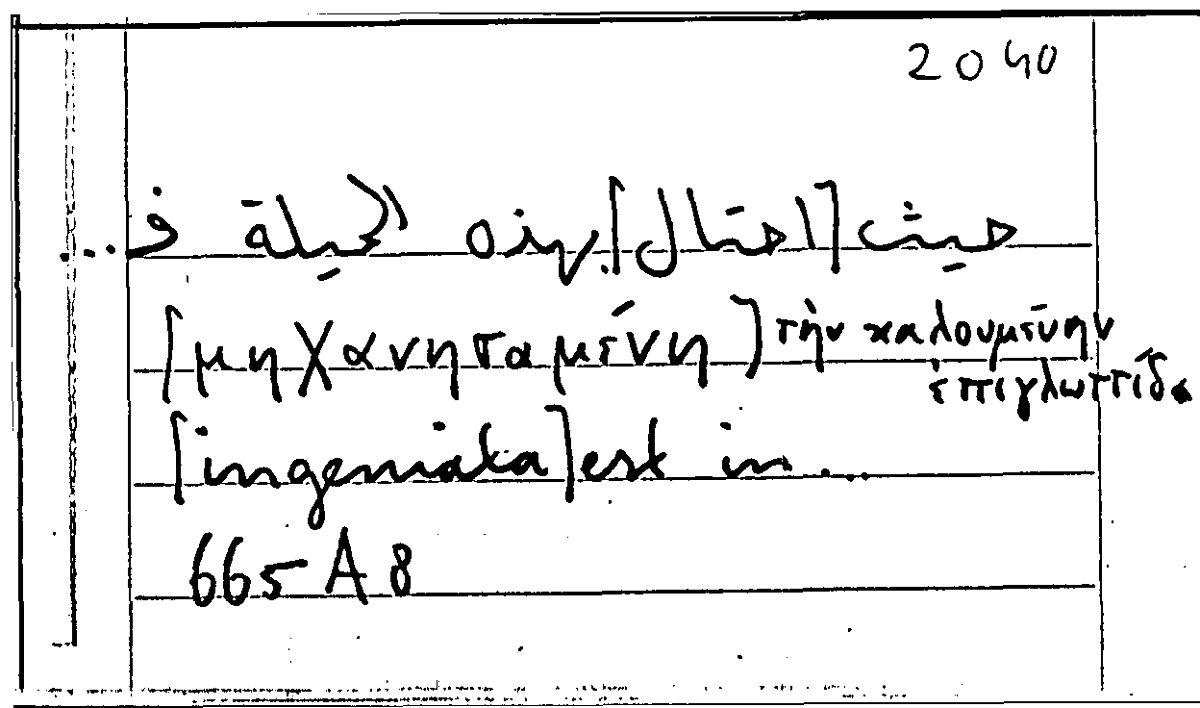 2040
حيث [احتال] بهذه الحيلة ف...
[μηχανησαμένη] τὴν καλουμένην
ἐπιγλωττίδα
[ingeniata] est in ...
665 A 8